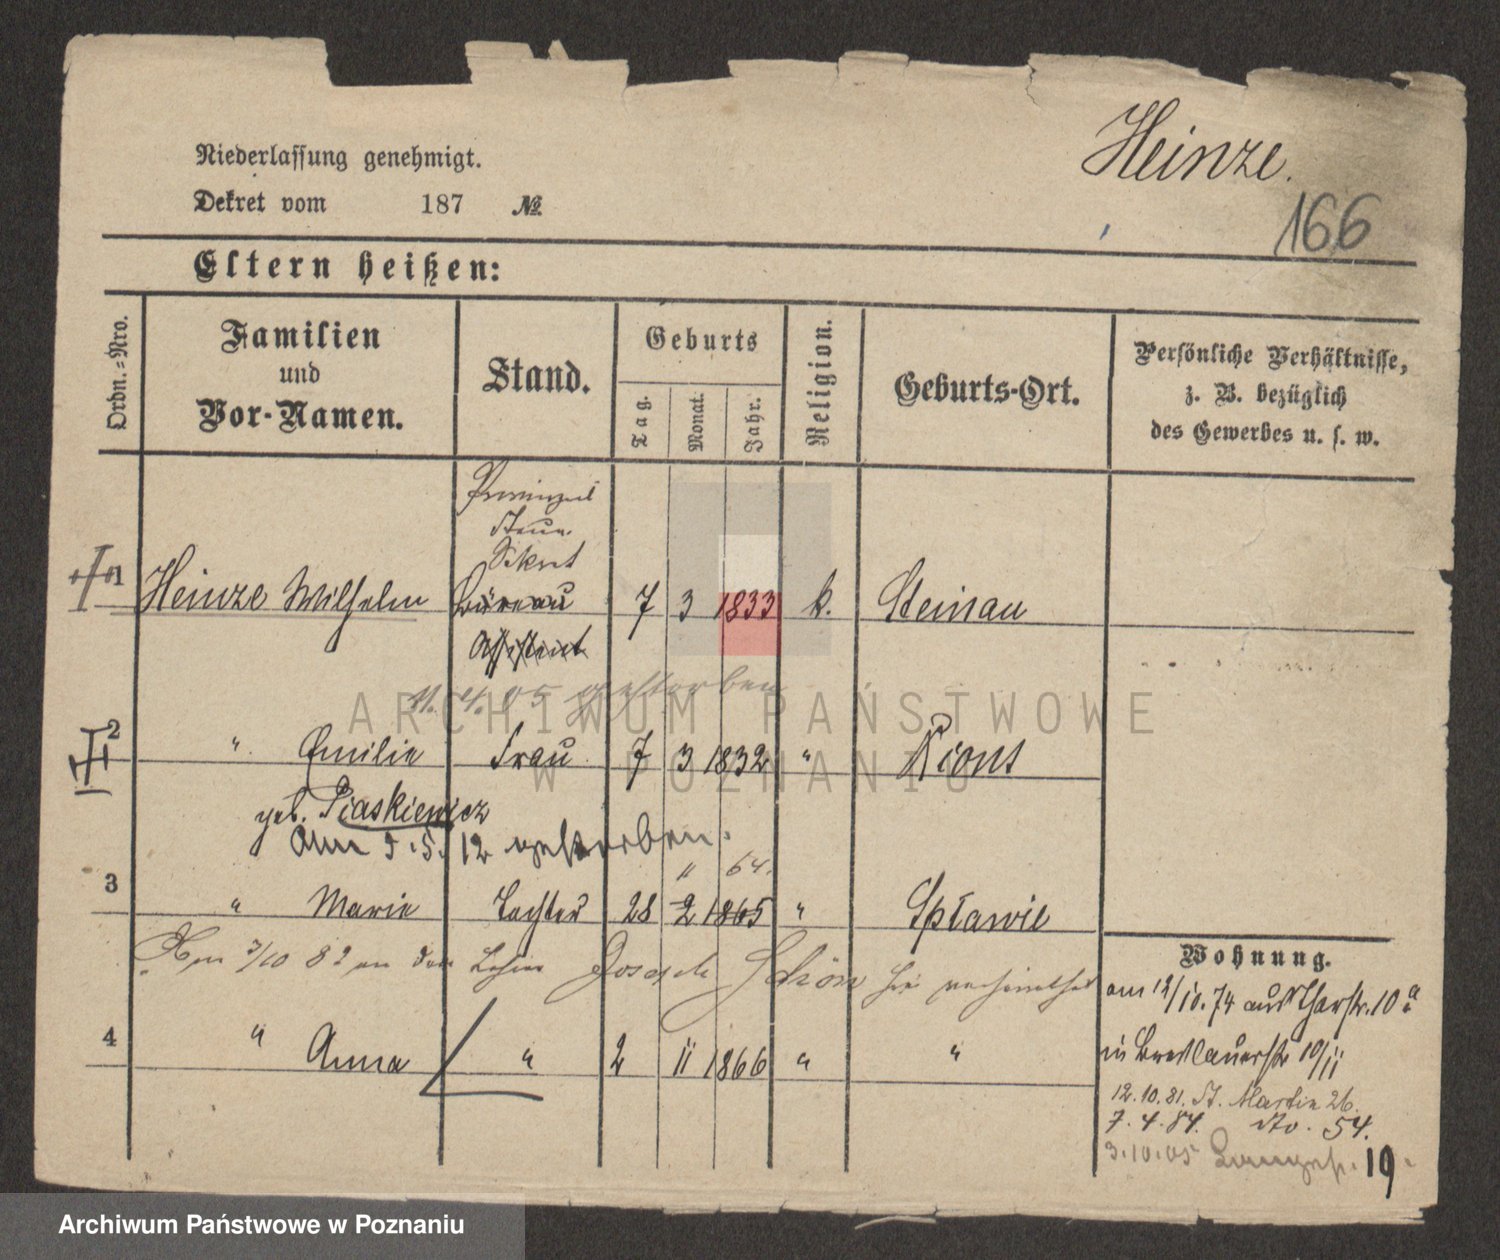 Heinze.
166
Niederlassung genehmigt.
Dekret vom 187 №
Eltern heißen:
Ordn.=Nro.
Familien
und
Vor-Namen.
Stand.
Geburts
Tag.
Monat.
Jahr.
Religion.
Geburts-Ort.
Persönliche Verhältnisse,
z. B. bezüglich
des Gewerbes u. s. w.
Provinzial
Steuer
Sekret
1 Heinze Wilhelm Büreau 7 3 1833 k. Steinau
Assistent
11.4.05 gestorben
2 " Emilie Frau 7 3 1832 " Xions
geb. Piaskiewicz
Am 5.5.12 gestorben.
" 64.
3 " Marie Tochter 28 2 1865 " Spławie
Am 3/10 82 an den Lehrer Joseph Schön hier verheirathet
4 " Anna " 2 11 1866 " "
Wohnung.
am 12/10.74 aus Thorstr. 10a
in Breslauerstr 10/11
12.10.81. St. Martin 26.
7.4.84. dto. 54.
3.10.05 19
ARCHIWUM PAŃSTWOWE
W POZNANIU
Archiwum Państwowe w Poznaniu